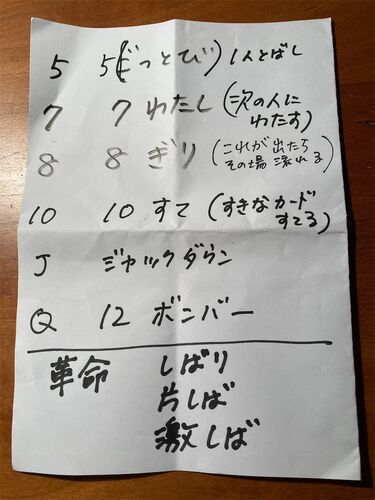 5 5(ごっとび) 1人とばし
7 7わたし (次の人に
わたす)
8 8ぎり (これが出たら
その場 流れる)
10 10すて (すきなカード
すてる)
J ジャックダウン
Q 12ボンバー
革命 しばり
片しば
激しば